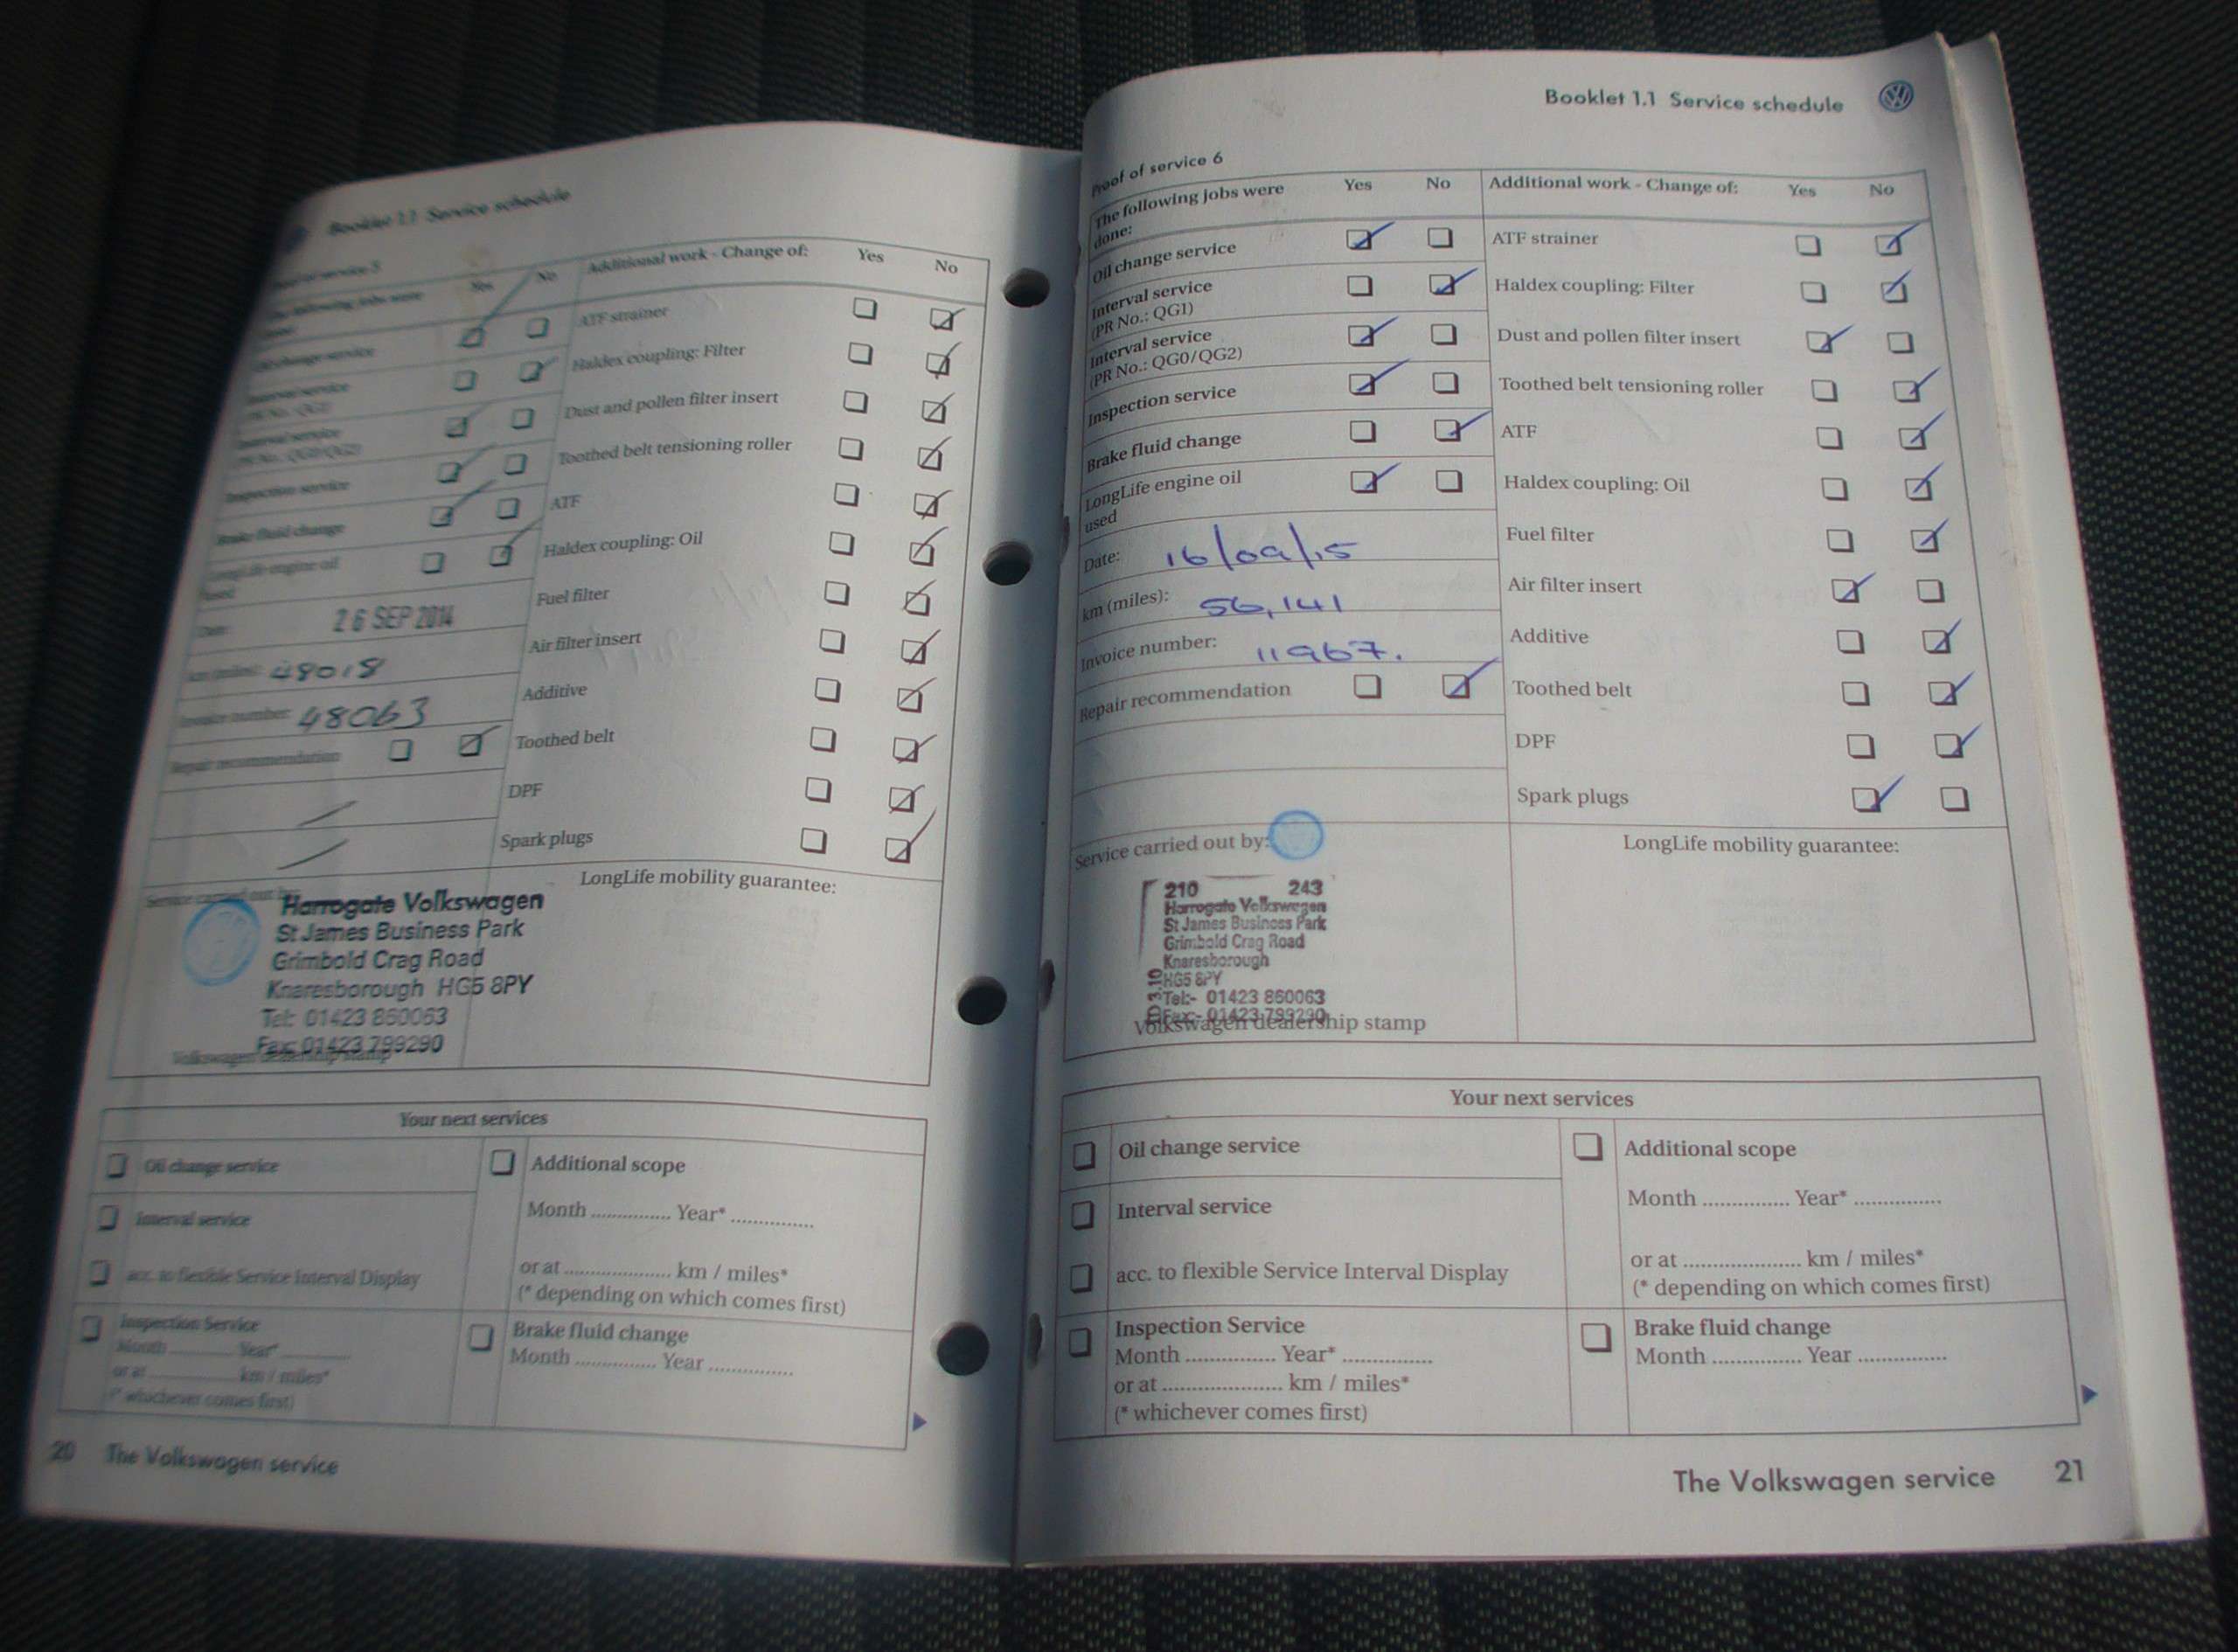 Booklet 1.1 Service schedule
Yes No Additional work - Change of: Yes No
ATF strainer
Oil change service
Haldex coupling: Filter
Interval service
Dust and pollen filter insert
Interval service
Toothed belt tensioning roller
Inspection service
ATF
Brake fluid change
Haldex coupling: Oil
LongLife engine oil
used
Fuel filter
Date: 26 SEP 2014
Air filter insert
km (miles): 48018
Additive
Invoice number: 48063
Toothed belt
Repair recommendation
DPF
Spark plugs
LongLife mobility guarantee:
Harrogate Volkswagen
St James Business Park
Grimbold Crag Road
Knaresborough HG5 8PY
Tel: 01423 860063
Fax: 01423 799290
Volkswagen dealership stamp
Your next services
Oil change service
Additional scope
Interval service
Month .............. Year* ..............
acc. to flexible Service Interval Display
or at ................... km / miles*
(* depending on which comes first)
Inspection Service
Month .............. Year* ..............
or at ................... km / miles*
(* whichever comes first)
Brake fluid change
Month .............. Year ..............
20 The Volkswagen service
Booklet 1.1 Service schedule
Proof of service 6
The following jobs were
done:
Yes No Additional work - Change of: Yes No
Oil change service
ATF strainer
Interval service
(PR No.: QG1)
Haldex coupling: Filter
Interval service
(PR No.: QG0/QG2)
Dust and pollen filter insert
Inspection service
Toothed belt tensioning roller
Brake fluid change
ATF
LongLife engine oil
used
Haldex coupling: Oil
Date: 16/09/15
Fuel filter
km (miles): 56,141
Air filter insert
Invoice number: 11967.
Additive
Repair recommendation
Toothed belt
DPF
Spark plugs
Service carried out by:
LongLife mobility guarantee:
210 243
Harrogate Volkswagen
St James Business Park
Grimbold Crag Road
Knaresborough
HG5 8PY
Tel:- 01423 860063
Fax:- 01423 799290
Volkswagen dealership stamp
Your next services
Oil change service
Additional scope
Interval service
Month .............. Year* ..............
acc. to flexible Service Interval Display
or at ................... km / miles*
(* depending on which comes first)
Inspection Service
Month .............. Year* ..............
or at ................... km / miles*
(* whichever comes first)
Brake fluid change
Month .............. Year ..............
The Volkswagen service 21